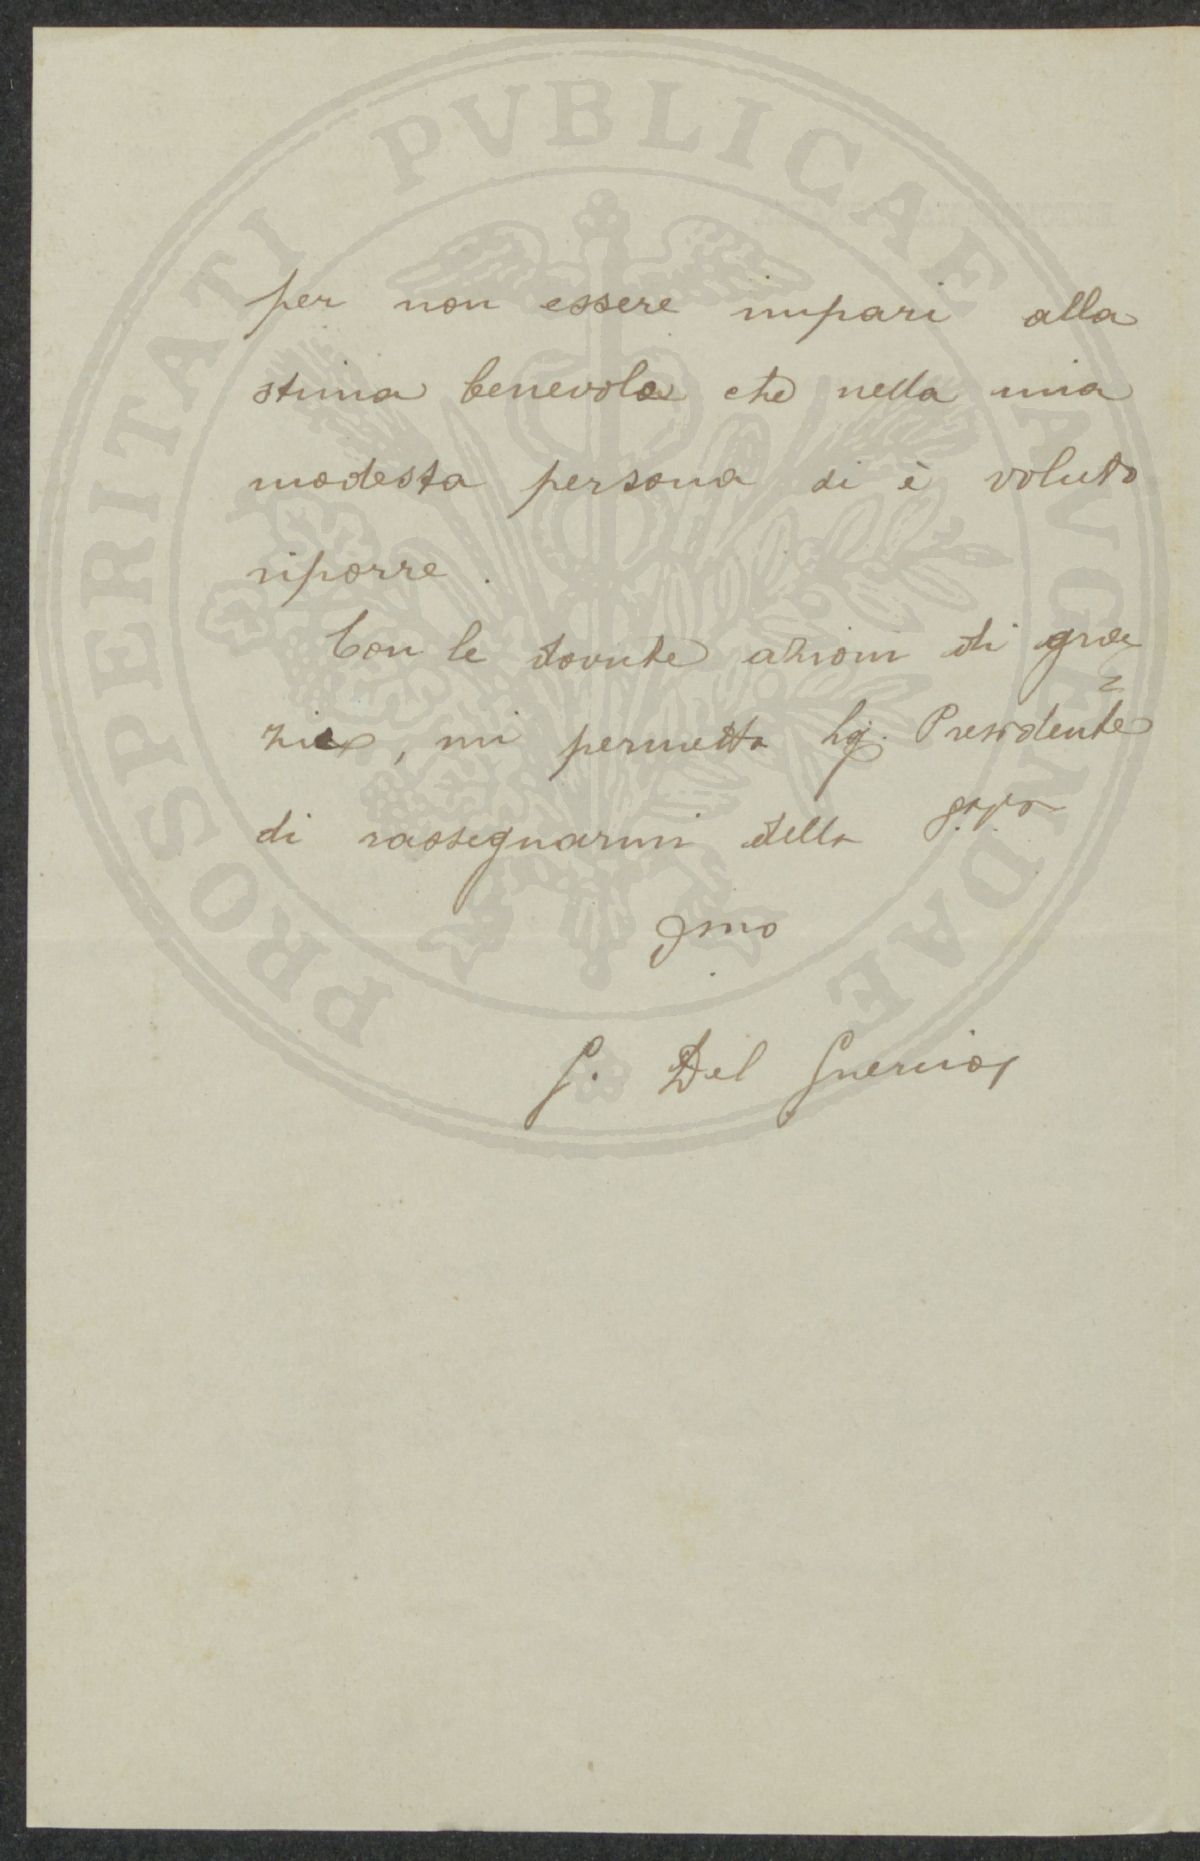 per non essere impari alla
stima benevola che nella mia
modesta persona si è voluto
riporre.
Con le dovute azioni di gra
zie, mi permetta Sig. Presidente
di rassegnarmi della
G. Del Guercio
PROSPERITATI PVBLICAE AVGENDAE